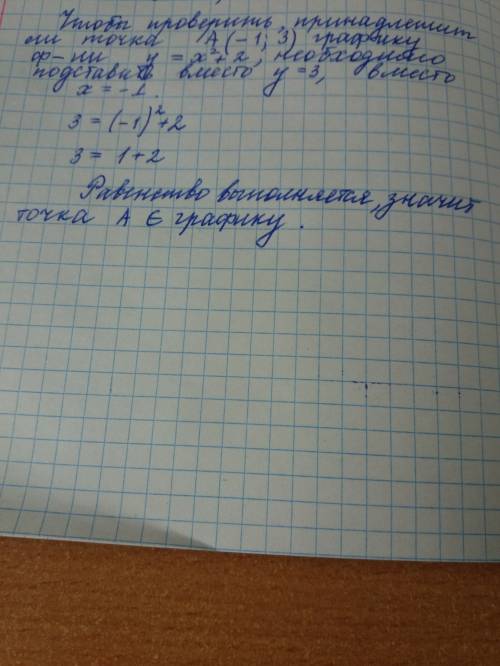 Чтобы проверить, принадлежит
ли точка А (-1; 3) графику
ф-ии y = x² + 2, необходимо
подставить вместо y = 3, вместо
x = -1.
3 = (-1)² + 2
3 = 1 + 2
Равенство выполняется, значит
точка А ∈ графику.